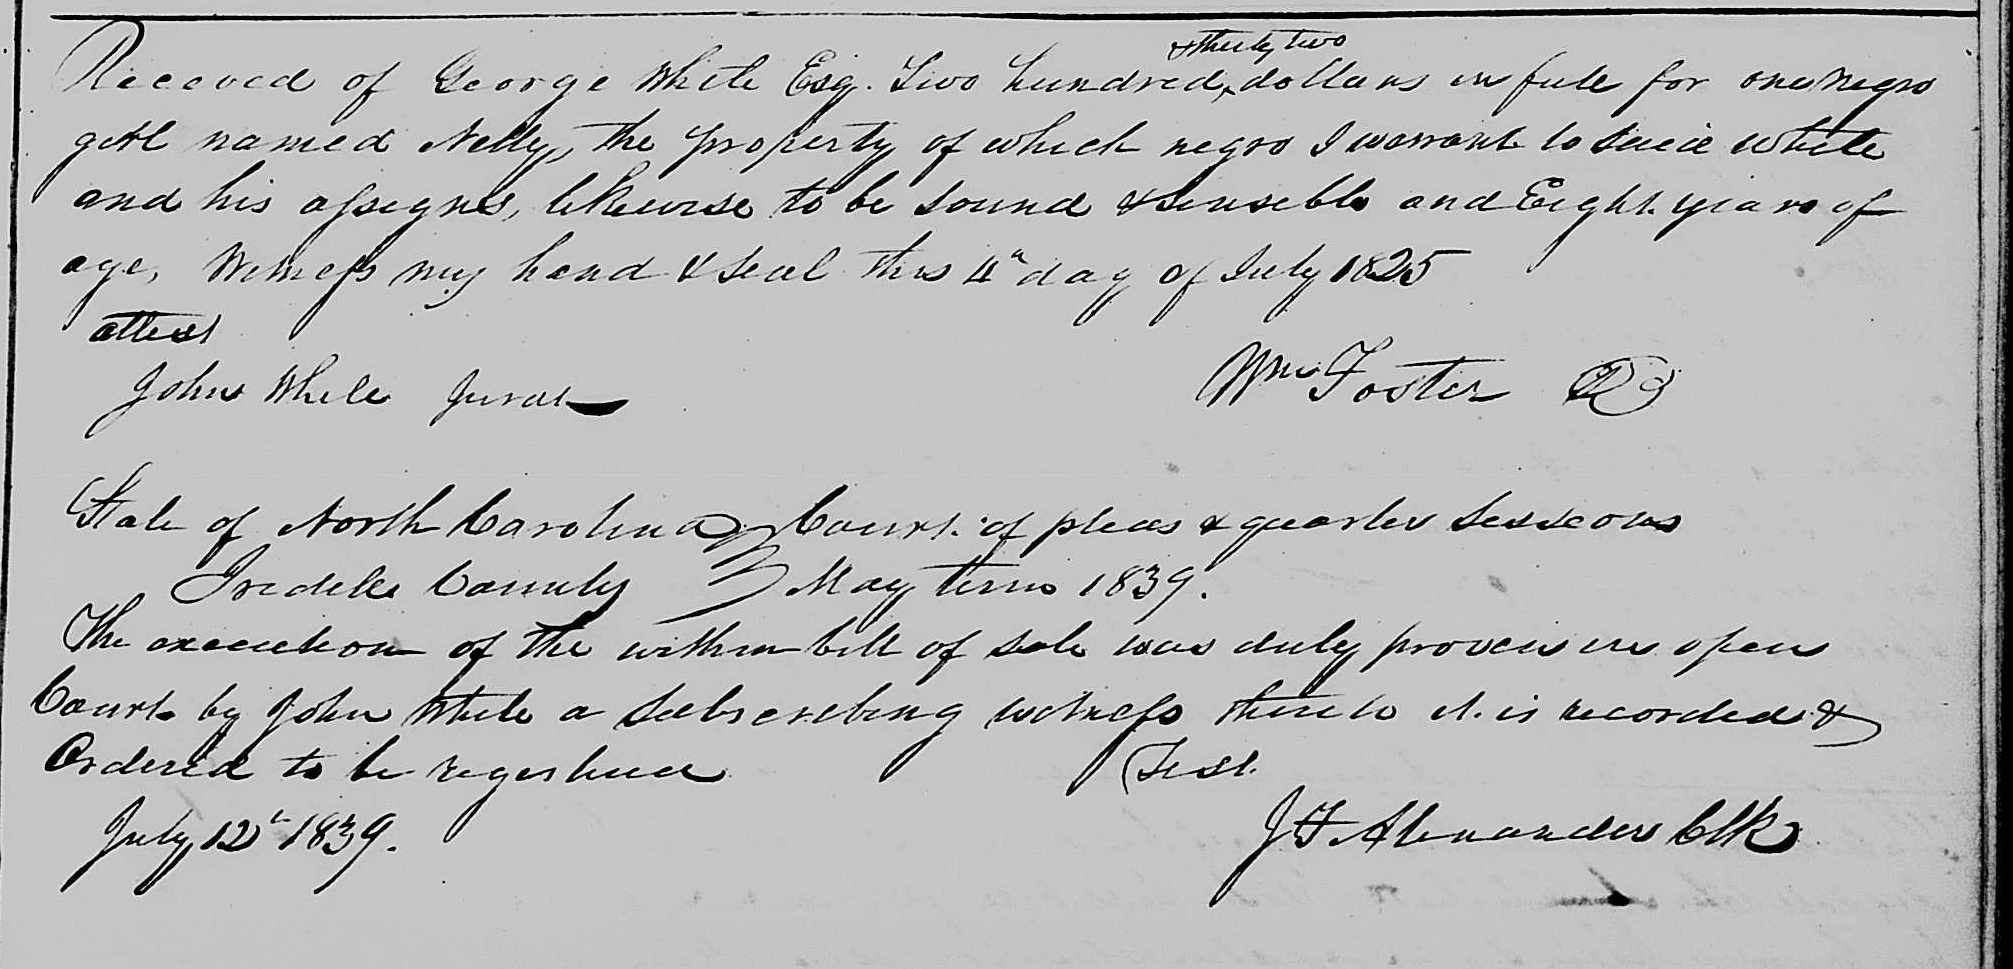 & thirty two
Receved of George White Esq. Two hundred, dollars in full for one negro
girl named Nelly, the property of which negro I warrant to said White
and his assigns, likewise to be sound & sensible and Eight years of
age, Witness my hand & seal this 4th day of July 1825
attest
John White Jurat
Wm Foster
State of North Carolina Court of pleas & quarter sessions
Iredell County May term 1839.
The execution of the within bill of sale was duly proven in open
Court by John White a subscribing witness thereto it is recorded &
Ordered to be registered Test.
July 12th 1839.
J F Alexander Clk